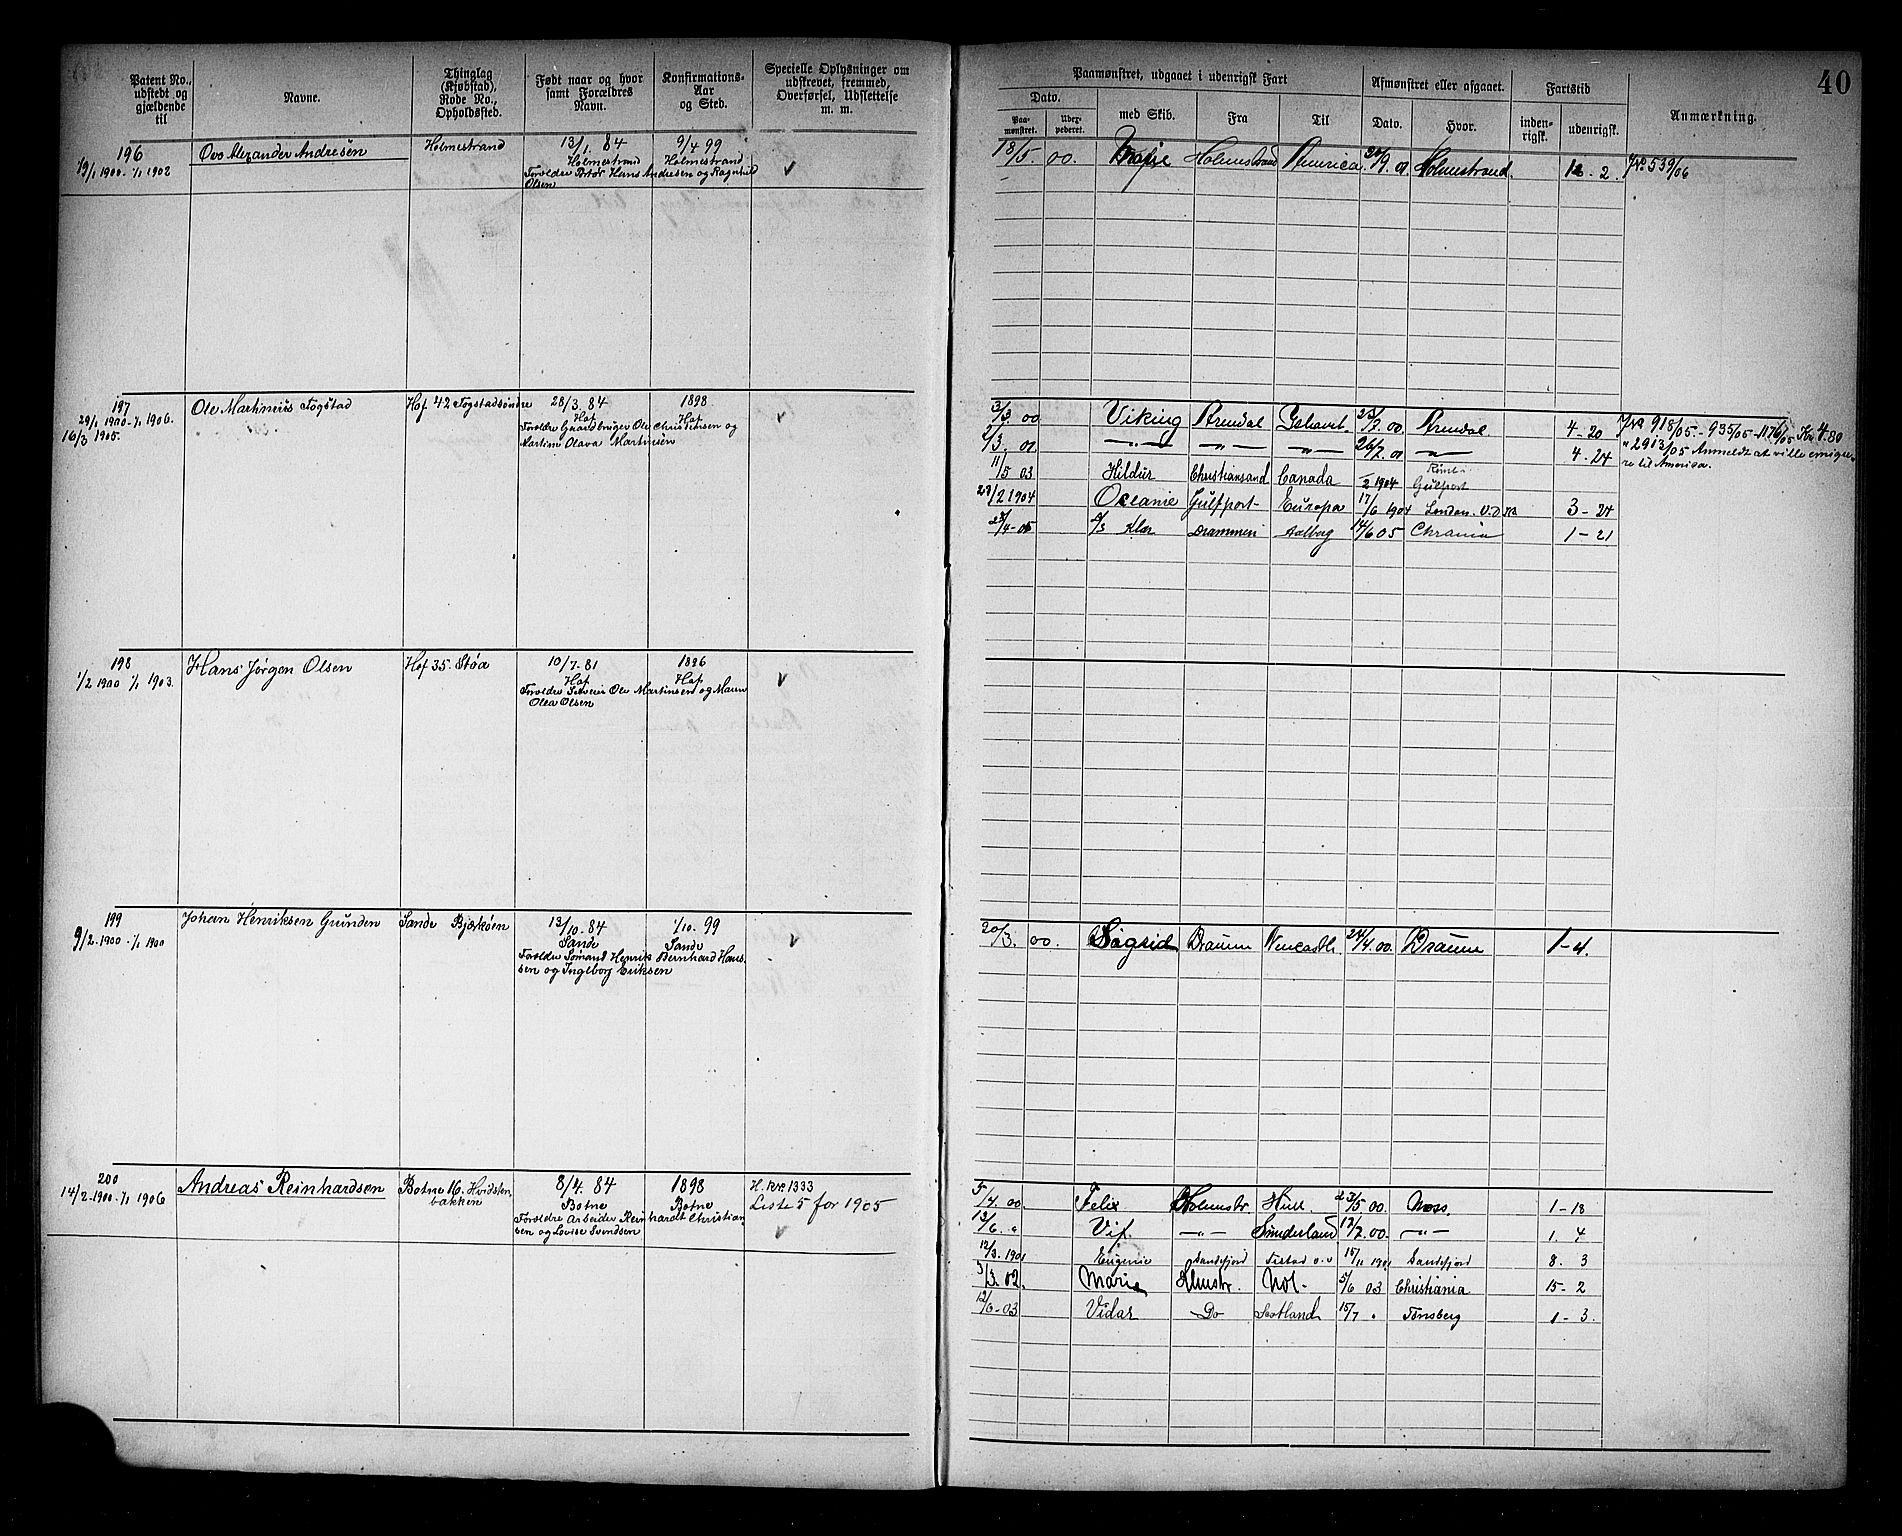 Patent No., udstedt og gjældende til
Navne.
Thinglag (Kjøbstad), Rode No., Opholdssted.
Født naar og hvor samt Forældres Navn.
Konfirmations-Aar og Sted.
Specielle Oplysninger om udskrevet, fremmed, Overførsel, Udslettelse m. m.
Paamønstret, udgaaet i udenrigsk Fart
Afmønstret eller afgaaet.
Fartstid
Anmærkning.
40
Dato.
Paa-mønstret.
med Skib.
Fra
Til
Dato.
Hvor.
inden-rigsk.
udenrigsk.
196
1900 - 1/1 1902
Ovo Alexander Andresen
Holmestrand
13/1. 84
Holmestrand
Forældre Hans Andresen og Ragnhild
Olsen
9/4 99
Holmestrand
✓
18/5. 00. Holmestrand America Holmestrand. - 2. 539/06
197
29/1 1900 - 1/1 1906.
16/3 1905.
Ole Martinius Fogstad
Hof 42 Fogstadsøndre
28/3. 84
Hof
Forældre Gaardbruger Ole Christensen og
Martine Olava Martinsen
1898
Hof
✓
3/3. 00 Viking Arendal 23/7. 00. Arendal. 4 - 20 918/05 - 935/05 - 1176/05 Kr 4.80
2/3. 01 —„— —„— —„— 26/7. 01 —„— 4 - 24 „ 2913/05 Anmeldt at ville emigre-
re til Amerika.
11/5 03 Hildur Christiansand Canada /2 1904 Gulfport
27/2 1904 Oceanie Gulfport - Europa 17/6 1904 London. 3 - 24
- 05 S/S Klar Drammen Aalborg 14/6 05 Chrania 1 - 21
198
1/2 1900 1/1 1903.
Hans Jørgen Olsen
Hof 35. Støa
10/7. 81
Hof
Forældre Ole Martinsen og Maren
Olea Olsen
1896
Hof
✓
199
9/2. 1900 - 1/1 1900
Johan Henriksen Grunden
Sande Bjerkøen
13/10. 84
Sande
Forældre Sømand Henrik Bernhard Hans-
sen og Ingeborg Eriksen
1/10. 99
Sande
✓
20/3. 00. Sigrid 24/4. 00. 1 - 4.
200
14/2. 1900 - 1/1 1906
Andreas Reinhardsen
Botne 16. Hvidsten
bakken
8/4. 84
Botne
Forældre Arbeider Reinhardt Christian
sen og Lovise Svendsen
1898
Botne
H. 1333
Liste 5 for 1905
✓
5/4. 00. Felix Holmestr Hull 23/5 00. Moss 1 - 18
13/6 „ Vif. —„— Sunderland 12/7. 00. —„— 1. 4
12/3. 1901 Eugenie Sandefjord 15/11 1901 Sandefjord 8. 3
3/3. 02 Marie Hlmstr. 5/6 03 Christiania 15 - 2
12/6 - 03 Vidar Do Scotland 15/7 „ Tønsberg 1 - 3.